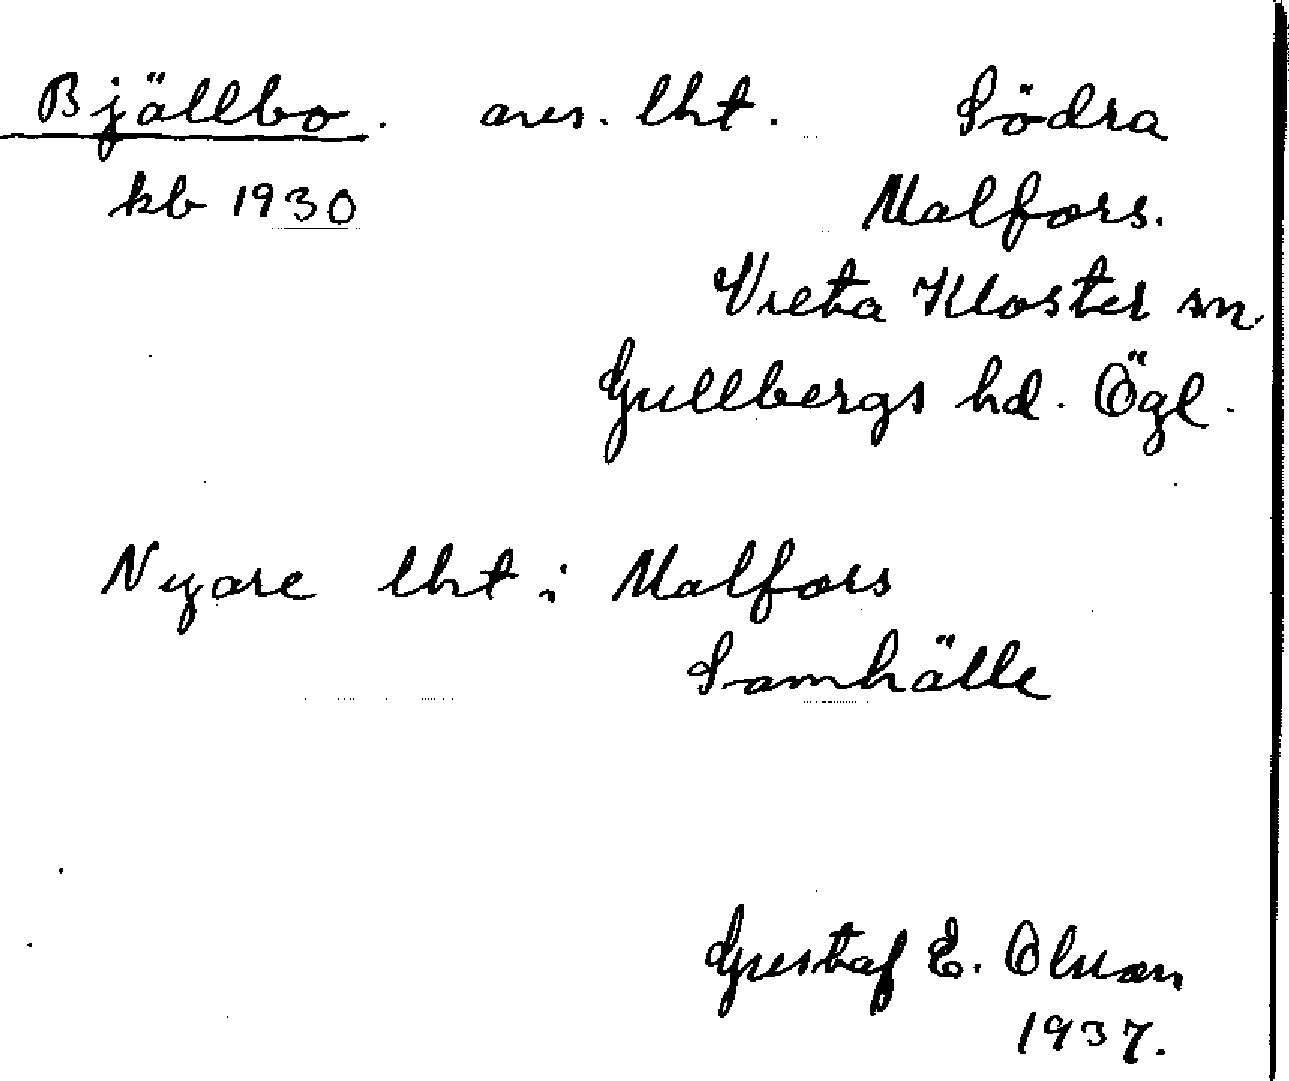 Bjällbo. avs. lht. Södra
kb 1930 Malfors.
Vreta Kloster sn.
Gullbergs hd. Ögl.
Nyare lht i Malfors
Samhälle
Gustaf E. Olsson
1937.